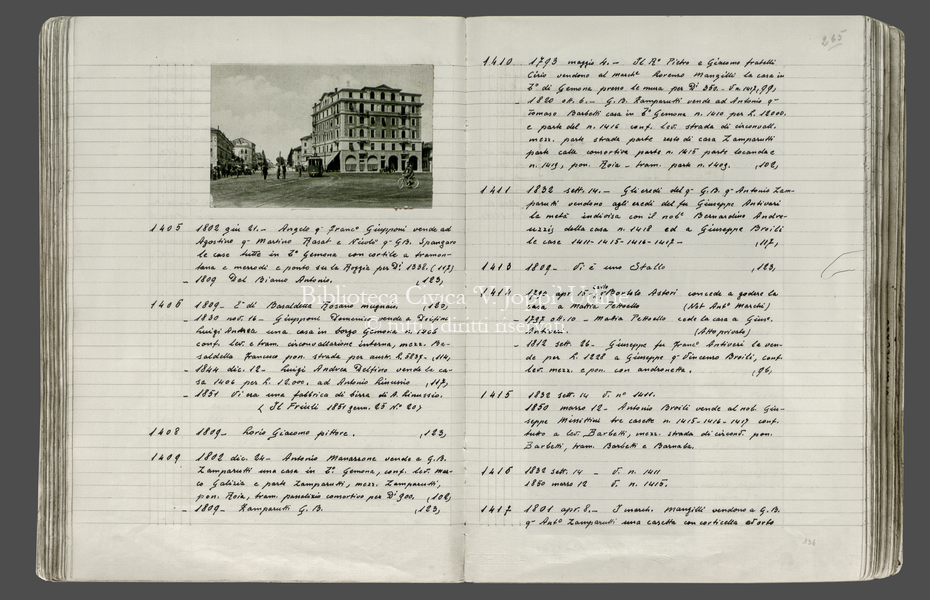 1405 1802 giu 21.— Angelo qm Francº Giupponi vende ad
Agostino qm Martino Rasat e Nicolò qm G.B. Spangaro
le case tutte in Bº Gemona con cortile a tramon-
tana e mezzodì e ponte su la Roggia per Dⁱ 1338. (117)
— 1809 Del Bianco Antonio. (123,
1406 1809— Eⁱ di Basaldella Rosario mugnaio (120,
— 1830 nov. 16— Giupponi Domenico vende a Delfino
Luigi Andrea una casa in borgo Gemona n. 1406
conf. lev. e tram. circonvallazione interna, mezz. Ba-
saldella Francesco pon. strada per austr. L. 5839.— (114,
— 1844 dic. 12— Luigi Andrea Delfino vende la ca-
sa 1406 per L. 12.000. ad Antonio Linussio (117,
— 1851 Vi era una fabbrica di birra di A. Linussio.
( Il Friuli 1851 genn. 25 N.º 20)
1408 1809— Lorio Giacomo pittore. (123,
1409 1802 dic. 24— Antonio Manazzone vende a G.B.
Zamparutti una casa in Bº Gemona, conf. lev. Mar-
co Galizia e parte Zamparutti, mezz. Zamparutti,
pon. Roia, tram. consortivo per Dⁱ 900. (102,
— 1809— Zamparutti G.B. (123,
265
1410 1793 maggio 4.— Il Rº Pietro e Giacomo fratelli
Cirio vendono al marchº Lorenzo Mangilli la casa in
Bº di Gemona presso le mura per Dⁱ 360.— V. n. 1417, (99)
— 1820 ott. 6.— G.B. Zamparutti vende ad Antonio qm
Tomaso Barbetti casa in Bº Gemona n. 1410 per L. 12000.
e parte del n. 1416 conf. lev. strada di circonvall.
mezz. parte strada parte resto di casa Zamparutti
parte calle consortiva parte n. 1415 parte locanda e
n. 1419, pon. Roia — tram. parte n. 1409. (102,
1411 1832 sett. 14.— Gli eredi del qm G.B. qm Antonio Zam-
parutti vendono agli eredi del fu Giuseppe Antivari
la metà indivisa con il nobº Bernardino Andre-
uzzi della casa n. 1418 ed a Giuseppe Broili
le case 1411-1415-1416-1417— (117,
1413 1809— Vi è uno Stallo (123,
1414 Bortolo Astori concede a godere la
casa a Mattia Petrello (Not Antº Marchi)
— 1797 ott. 10— Mattia Petrello cede la casa a Gius.
Antivari. (Atto privato)
— 1812 sett. 26— Giuseppe fu Francº Antivari la ven-
de per L. 1228 a Giuseppe qm Vincenzo Broili, conf.
lev. mezz. e pon. con andronetta. (96,
1415 1832 sett. 14 V. nº 1411.
1850 marzo 12— Antonio Broili vende al nob. Giu-
seppe Missittini tre casette n. 1415-1416-1417 conf.
tutto a lev. Barbetti, mezz. strada di circonv. pon.
Barbetti, tram. Barbetti e Barnaba.
1416 1832 sett. 14 — V. n. 1411
1850 marzo 12 V. n. 1415,
1417 1801 apr. 8.— I march. Mangilli vendono a G.B.
qm Antº Zamparutti una casetta con corticella ed orto
134
Biblioteca Civica 'V. Joppi' Udine
© tutti i diritti riservati